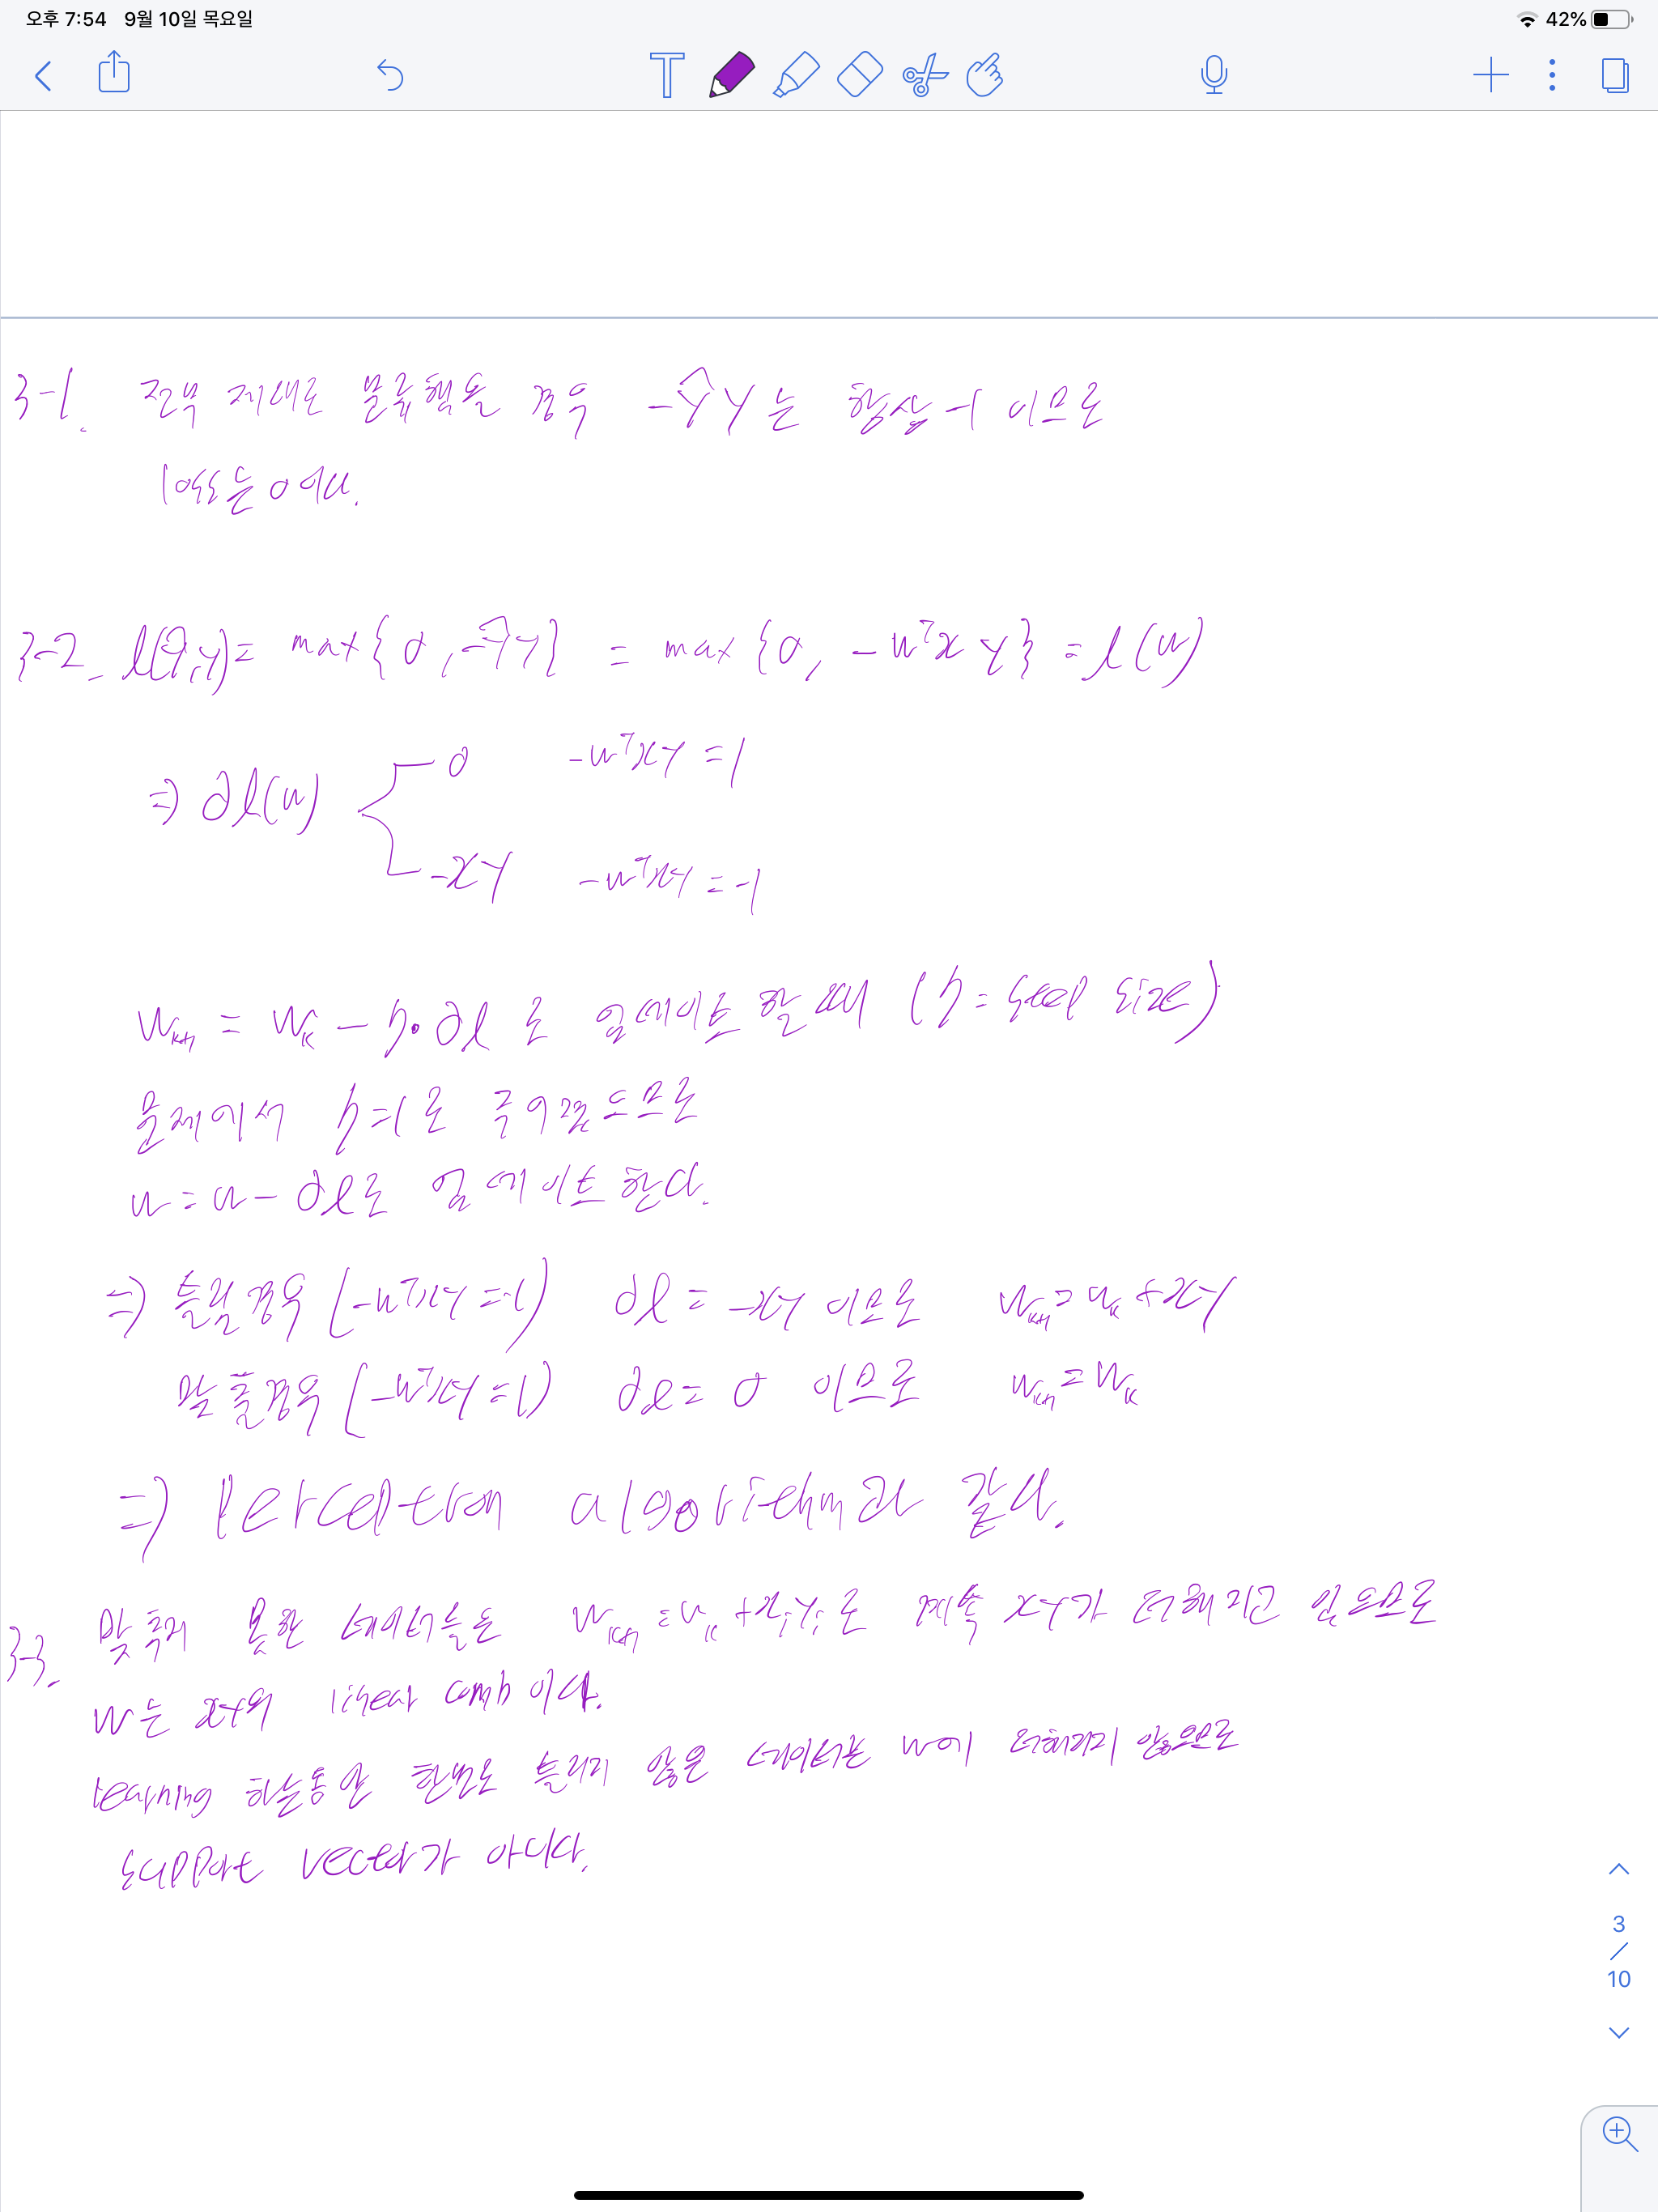 오후 7:54 9월 10일 목요일 42%
3-1. 전부 제대로 분류했을 경우 -ŷy는 항상 -1 이므로
loss는 0이다.
3-2. l(ŷ,y) = max{0, -ŷy} = max{0, -wᵀxy} = l(w)
⇒ ∂l(w) 0 -wᵀxy = 1
-xy -wᵀxy = -1
wₖ₊₁ = wₖ - η·∂l 로 업데이트 할 때 (η = step size)
문제에서 η=1로 주어졌으므로
w = w - ∂l로 업데이트 한다.
⇒ 틀릴경우 (-wᵀxy = -1) ∂l = -xy 이므로 wₖ₊₁ = wₖ + xy
맞출경우 (-wᵀxy = 1) ∂l = 0 이므로 wₖ₊₁ = wₖ
⇒ Perceptron algorithm과 같다.
3-3. 맞추지 못한 데이터들은 wₖ₊₁ = wₖ + xᵢyᵢ로 계속 xy가 더해지고 있으므로
w는 xy의 linear comb이다.
learning 하는동안 한번도 틀리지 않은 데이터는 w에 더해지지 않으므로
support vector가 아니다.
3
/
10